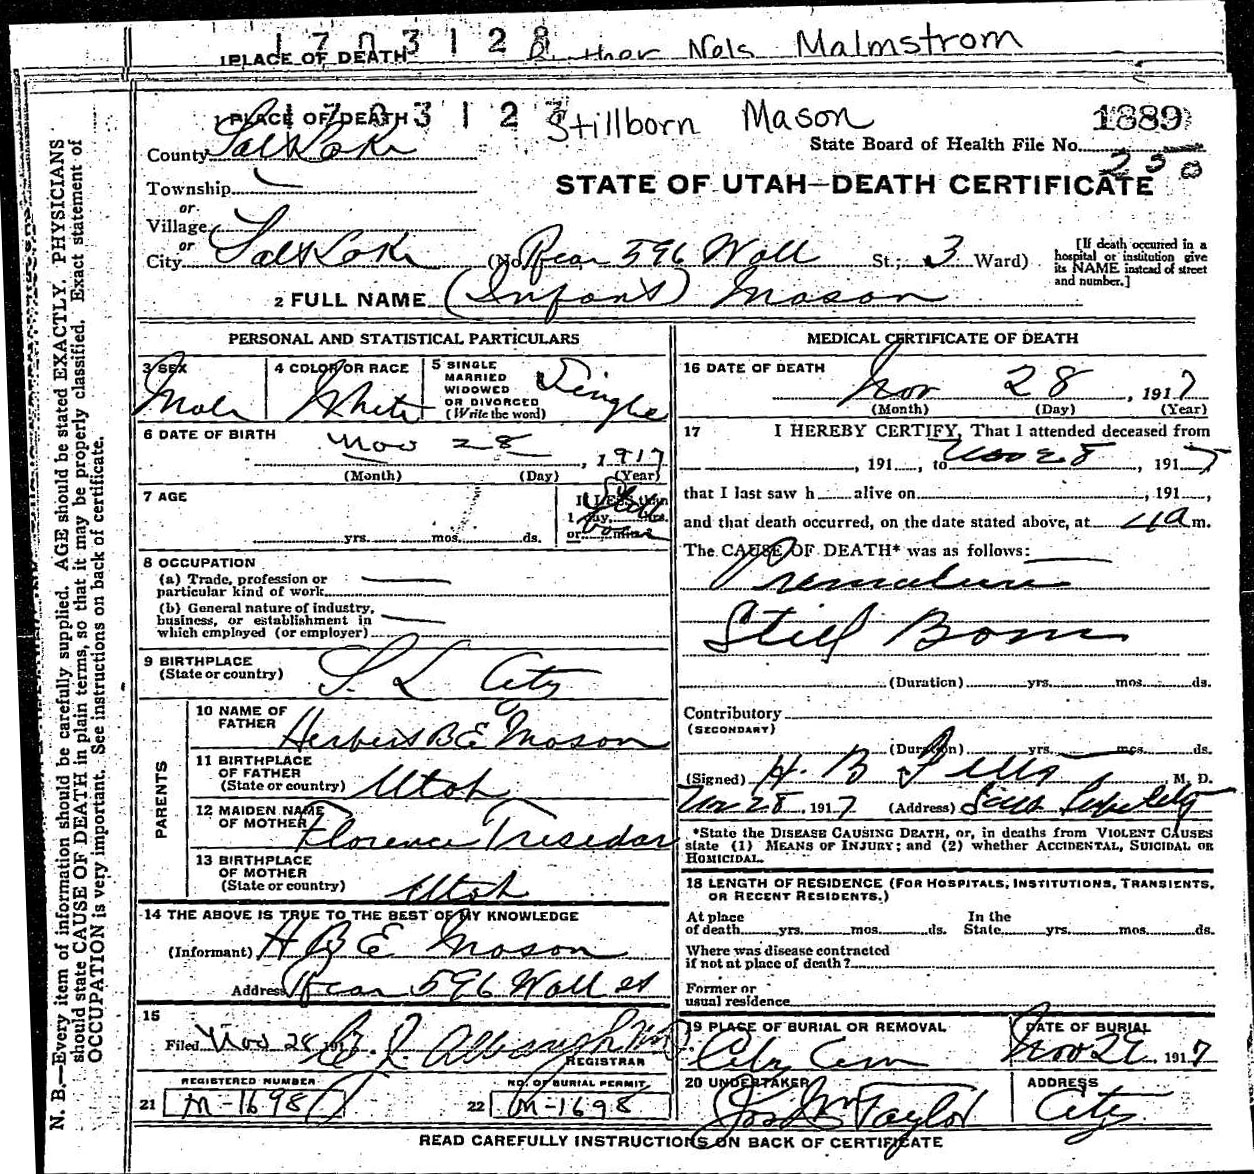 1 7 0 3 1 2 8
1 PLACE OF DEATH Nels Malmstrom
1 7 0 3 1 2
1 PLACE OF DEATH Stillborn Mason 1889
County Salt Lake State Board of Health File No. 258
Township
or
Village
or
City Salt Lake (No. Rear 596 Wall St.; 3 Ward)
STATE OF UTAH—DEATH CERTIFICATE
[If death occurred in a
hospital or institution give
its NAME instead of street
and number.]
2 FULL NAME (Infant) Mason
PERSONAL AND STATISTICAL PARTICULARS
3 SEX Male
4 COLOR OR RACE White
5 SINGLE
MARRIED
WIDOWED
OR DIVORCED
(Write the word) Single
6 DATE OF BIRTH Nov 28, 1917
(Month) (Day) (Year)
7 AGE
yrs. mos. ds.
If LESS than
1 day, hrs.
or min.?
Still
born
8 OCCUPATION
(a) Trade, profession or
particular kind of work
(b) General nature of industry,
business, or establishment in
which employed (or employer)
9 BIRTHPLACE
(State or country) S. L City
PARENTS
10 NAME OF
FATHER Herbert B E Mason
11 BIRTHPLACE
OF FATHER
(State or country) Utah
12 MAIDEN NAME
OF MOTHER Florence Tresedar
13 BIRTHPLACE
OF MOTHER
(State or country) Utah
14 THE ABOVE IS TRUE TO THE BEST OF MY KNOWLEDGE
(Informant) H B E Mason
Address Rear 596 Wall st
15
Filed Nov 28, 1917
REGISTRAR
REGISTERED NUMBER
21 M-1698
NO. OF BURIAL PERMIT
22 M-1698
MEDICAL CERTIFICATE OF DEATH
16 DATE OF DEATH
Nov 28, 1917
(Month) (Day) (Year)
17 I HEREBY CERTIFY, That I attended deceased from
, 191 , to Nov 28, 1917
that I last saw h alive on , 191 ,
and that death occurred, on the date stated above, at 4 a m.
The CAUSE OF DEATH* was as follows:
Premature
Still Born
(Duration) yrs. mos. ds.
Contributory
(SECONDARY)
(Duration) yrs. mos. ds.
(Signed) H. B , M. D.
Nov 28, 1917 (Address)
*State the DISEASE CAUSING DEATH, or, in deaths from VIOLENT CAUSES
state (1) MEANS OF INJURY; and (2) whether ACCIDENTAL, SUICIDAL OR
HOMICIDAL.
18 LENGTH OF RESIDENCE (FOR HOSPITALS, INSTITUTIONS, TRANSIENTS,
OR RECENT RESIDENTS.)
At place In the
of death yrs. mos. ds. State yrs. mos. ds.
Where was disease contracted
if not at place of death?
Former or
usual residence
19 PLACE OF BURIAL OR REMOVAL
City Cem
DATE OF BURIAL
Nov 29 1917
20 UNDERTAKER
Jos Wm Taylor
ADDRESS
City
READ CAREFULLY INSTRUCTIONS ON BACK OF CERTIFICATE
N. B.—Every item of information should be carefully supplied. AGE should be stated EXACTLY. PHYSICIANS
should state CAUSE OF DEATH in plain terms, so that it may be properly classified. Exact statement of
OCCUPATION is very important. See instructions on back of certificate.